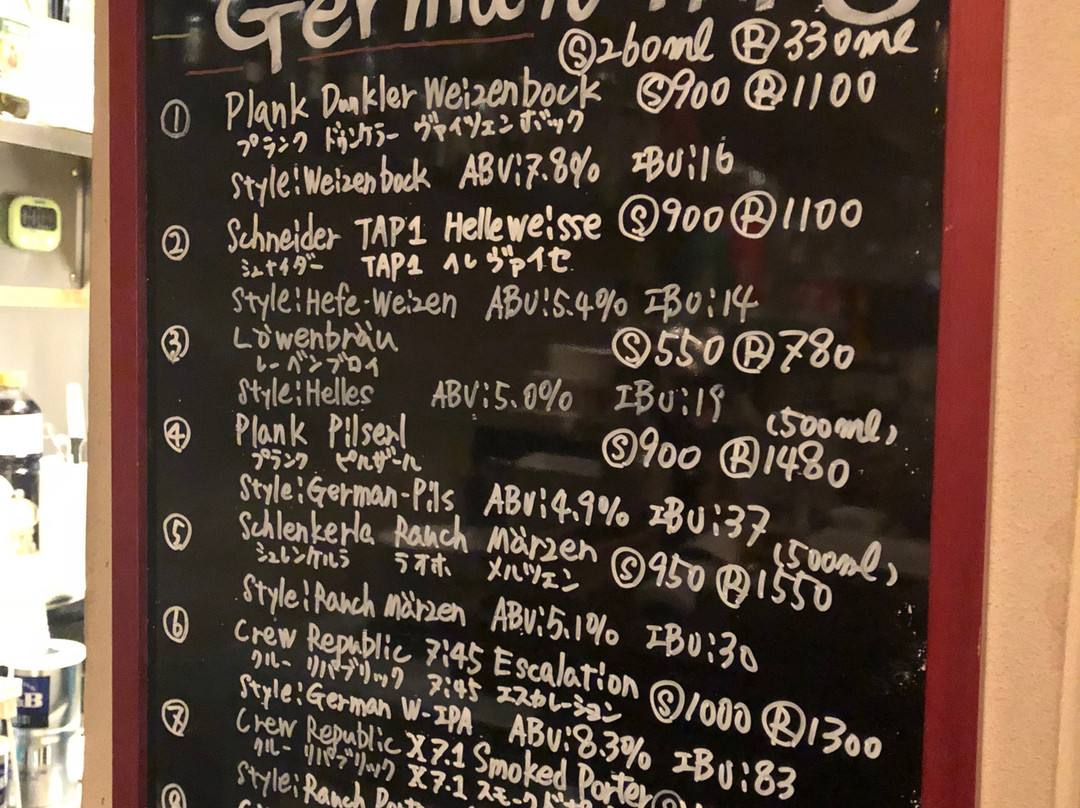 German TAPS
Ⓢ260ml Ⓡ330ml
① Plank Dunkler Weizenbock Ⓢ900 Ⓡ1100
プランク ドゥンクラー ヴァイツェンボック
Style:Weizenbock ABV:7.8% IBU:16
② Schneider TAP1 Helleweisse Ⓢ900 Ⓡ1100
シュナイダー TAP1 ヘレヴァイセ
Style:Hefe-Weizen ABV:5.4% IBU:14
③ Löwenbräu Ⓢ550 Ⓡ780
レーベンブロイ
Style:Helles ABV:5.0% IBU:19
(500ml)
④ Plank Pilserl Ⓢ900 Ⓡ1480
プランク ピルザール
Style:German-Pils ABV:4.9% IBU:37
(500ml)
⑤ Schlenkerla Rauch märzen Ⓢ950 Ⓡ1550
シュレンケルラ ラオホ メルツェン
Style:Rauch märzen ABV:5.1% IBU:30
⑥ Crew Republic 7:45 Escalation Ⓢ1000 Ⓡ1300
クルー リパブリック 7:45 エスカレーション
Style:German W-IPA ABV:8.3% IBU:83
⑦ Crew Republic X7.1 Smoked Porter Ⓢ
クルー リパブリック X7.1 スモークド
Style:Rauch
⑧